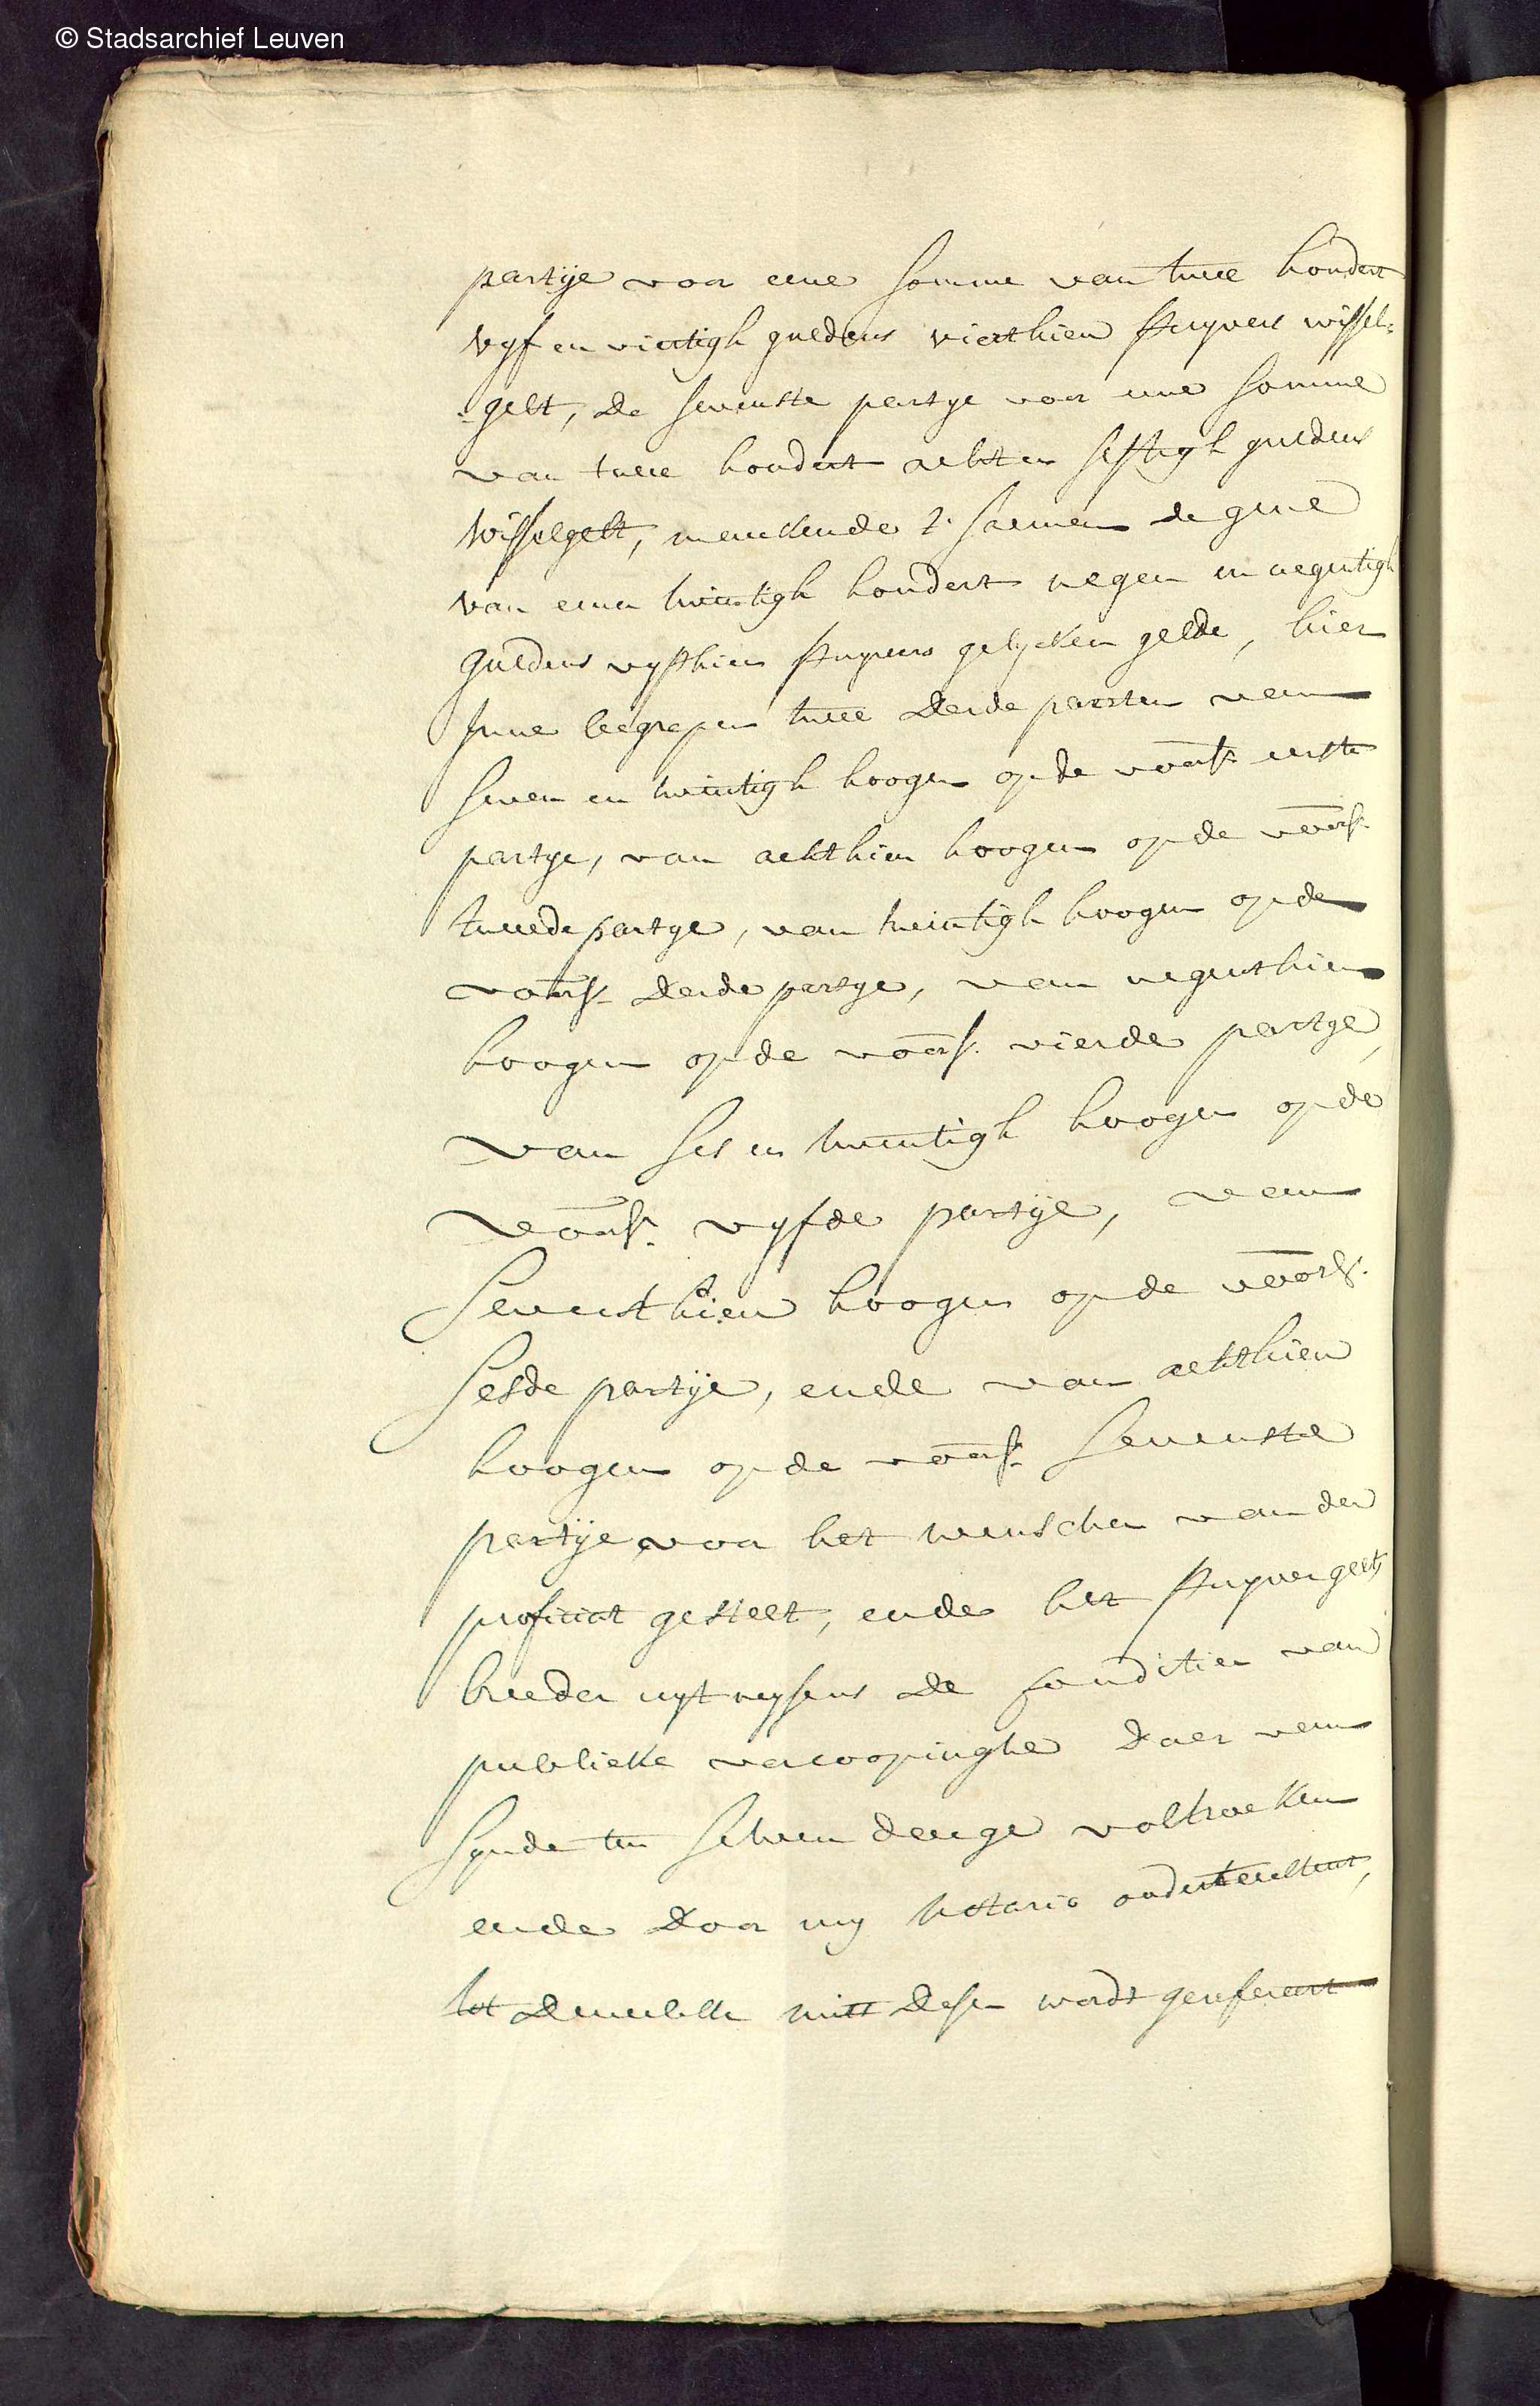 © Stadsarchief Leuven
partije voor eene somme van twee hondert
vyf en viertigh guldens vierthien stuyvers wissel=
=gelt, de sevenste partye voor eene somme
van twee hondert acht en sestigh guldens
wisselgelt, maeckende t' saemen de gene
van eenen twintigh hondert negen en negentigh
guldens vyfthien stuyvers gelycken gelde, hier
inne begrepen twee derde paerten van
seven en twintigh hoogen op de voors. eerste
partye, van achthien hoogen op de voors.
tweede partye, van twintigh hoogen op de
voors. derde partye, van negenthien
hoogen op de voors. vierde partye,
van ses en twintigh hoogen op de
voors. vyfde partije, van
seventhien hoogen op de voors.
sesde partije, ende van achthien
hoogen op de voors. sevenste
partije voor het wenschen van den
proficiat gestelt, ende het stuyvergelt,
breeder uytwysens de conditien van
publieke vercoopinghe daer van
synde ten selven daege voltrocken
ende door my notaris onderteekent,
tot dewelcke mits desen wordt gerefereert